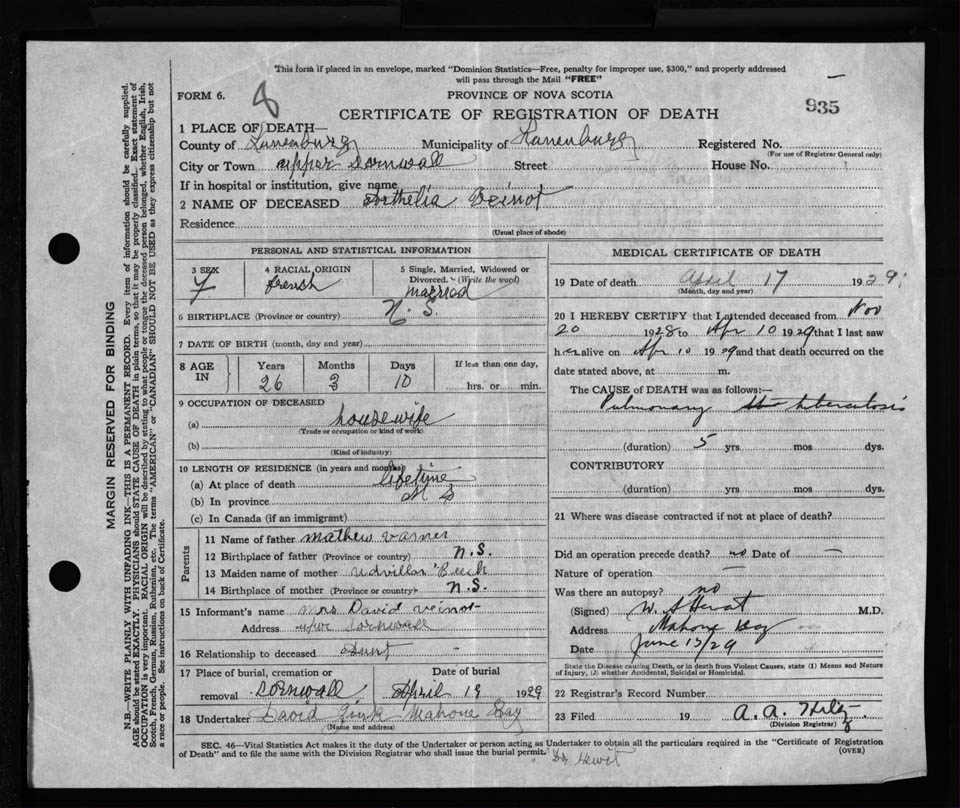 This form if placed in an envelope, marked "Dominion Statistics—Free, penalty for improper use, $300," and properly addressed
will pass through the Mail "FREE"
FORM 6.
8
PROVINCE OF NOVA SCOTIA
935
CERTIFICATE OF REGISTRATION OF DEATH
1 PLACE OF DEATH—
County of Lunenburg Municipality of Lunenburg Registered No.
(For use of Registrar General only)
City or Town upper Cornwall Street House No.
If in hospital or institution, give name
2 NAME OF DECEASED Orthelia Veinot
Residence
(Usual place of abode)
PERSONAL AND STATISTICAL INFORMATION
3 SEX 4 RACIAL ORIGIN 5 Single, Married, Widowed or
Divorced. (Write the word)
F french married
6 BIRTHPLACE (Province or country) N. S.
7 DATE OF BIRTH (month, day and year)
8 AGE IN Years Months Days If less than one day,
26 3 10 hrs. or min.
9 OCCUPATION OF DECEASED
(a) housewife
(Trade or occupation or kind of work)
(b)
(Kind of industry)
10 LENGTH OF RESIDENCE (in years and months)
(a) At place of death lifetime
(b) In province N S
(c) In Canada (if an immigrant)
Parents
11 Name of father mathew varner
12 Birthplace of father (Province or country) N.S.
13 Maiden name of mother
14 Birthplace of mother (Province or country) N.S.
15 Informant's name Mrs David veinot
Address uper Cornwall
16 Relationship to deceased Aunt
17 Place of burial, cremation or Date of burial
removal Cornwall April 19 1929
18 Undertaker David Mahone Bay
(Name and address)
MEDICAL CERTIFICATE OF DEATH
19 Date of death April 17 1929
(Month, day and year)
20 I HEREBY CERTIFY that I attended deceased from Nov
20 1928 to Apr 10 1929 that I last saw
her alive on Apr 10 1929 and that death occurred on the
date stated above, at m.
The CAUSE of DEATH was as follows:—
Pulmonary tuberculosis
(duration) 5 yrs mos dys.
CONTRIBUTORY
(duration) yrs mos dys.
21 Where was disease contracted if not at place of death?
Did an operation precede death? no Date of —
Nature of operation —
Was there an autopsy? no
(Signed) M.D.
Address Mahone Bay
Date June 15/29
State the Disease causing Death, or in death from Violent Causes, state (1) Means and Nature
of Injury, (2) whether Accidental, Suicidal or Homicidal.
22 Registrar's Record Number
23 Filed 19 A. A.
(Division Registrar)
SEC. 46—Vital Statistics Act makes it the duty of the Undertaker or person acting as Undertaker to obtain all the particulars required in the "Certificate of Registration
of Death" and to file the same with the Division Registrar who shall issue the burial permit. (OVER)
MARGIN RESERVED FOR BINDING
N.B.—WRITE PLAINLY WITH UNFADING INK—THIS IS A PERMANENT RECORD. Every item of information should be carefully supplied.
AGE should be stated EXACTLY. PHYSICIANS should STATE CAUSE OF DEATH in plain terms, so that it may be properly classified. Exact statement of
OCCUPATION is very important. RACIAL ORIGIN will be described by stating to what people or tongue the deceased person belonged, whether English, Irish,
Scotch, French, German, Russian, Ruthenian, etc. The terms "AMERICAN" or "CANADIAN" SHOULD NOT BE USED as they express citizenship but not
a race or people. See instructions on back of Certificate.